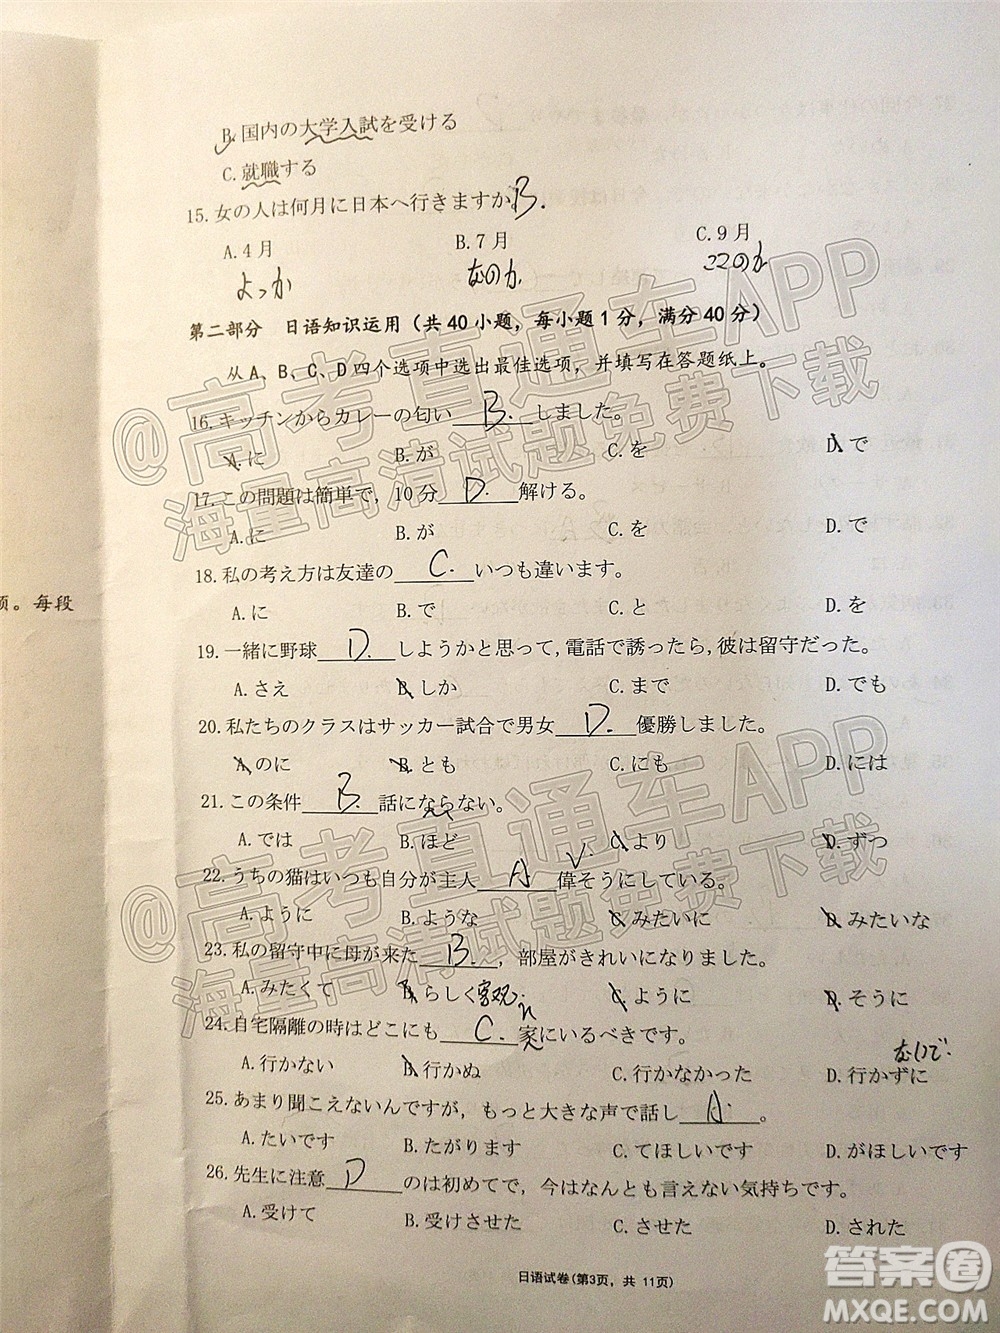 B.国内の大学入試を受ける
C.就職する
15.女の人は何月に日本へ行きますか。B.
A.4月 B.7月 C.9月
よっか なのか ここのか
第二部分 日语知识运用（共40小题，每小题1分，满分40分）
从A、B、C、D四个选项中选出最佳选项，并填写在答题纸上。
16.キッチンからカレーの匂い B. しました。
A.に B.が C.を D.で
17.この問題は簡単で，10分 D. 解ける。
A.に B.が C.を D.で
18.私の考え方は友達の C. いつも違います。
A.に B.で C.と D.を
项。每段
19.一緒に野球 D. しようかと思って,電話で誘ったら,彼は留守だった。
A.さえ B.しか C.まで D.でも
20.私たちのクラスはサッカー試合で男女 D. 優勝しました。
A.のに B.とも C.にも D.には
21.この条件 B. 話にならない。
A.では B.ほど C.より D.ずつ
22.うちの猫はいつも自分が主人 A 偉そうにしている。
A.ように B.ような C.みたいに D.みたいな
23.私の留守中に母が来た B. ，部屋がきれいになりました。
A.みたくて B.らしく C.ように D.そうに
24.自宅隔離の時はどこにも C. 家にいるべきです。
ないで
A.行かない B.行かぬ C.行かなかった D.行かずに
25.あまり聞こえないんですが，もっと大きな声で話し A. 。
A.たいです B.たがります C.てほしいです D.がほしいです
26.先生に注意 D のは初めてで，今はなんとも言えない気持ちです。
A.受けて B.受けさせた C.させた D.された
日语试卷(第3页，共 11页)
@高考直通车APP
海量高清试题免费下载
@高考直通车APP
海量高清试题免费下载
答案圈
MXQE.COM